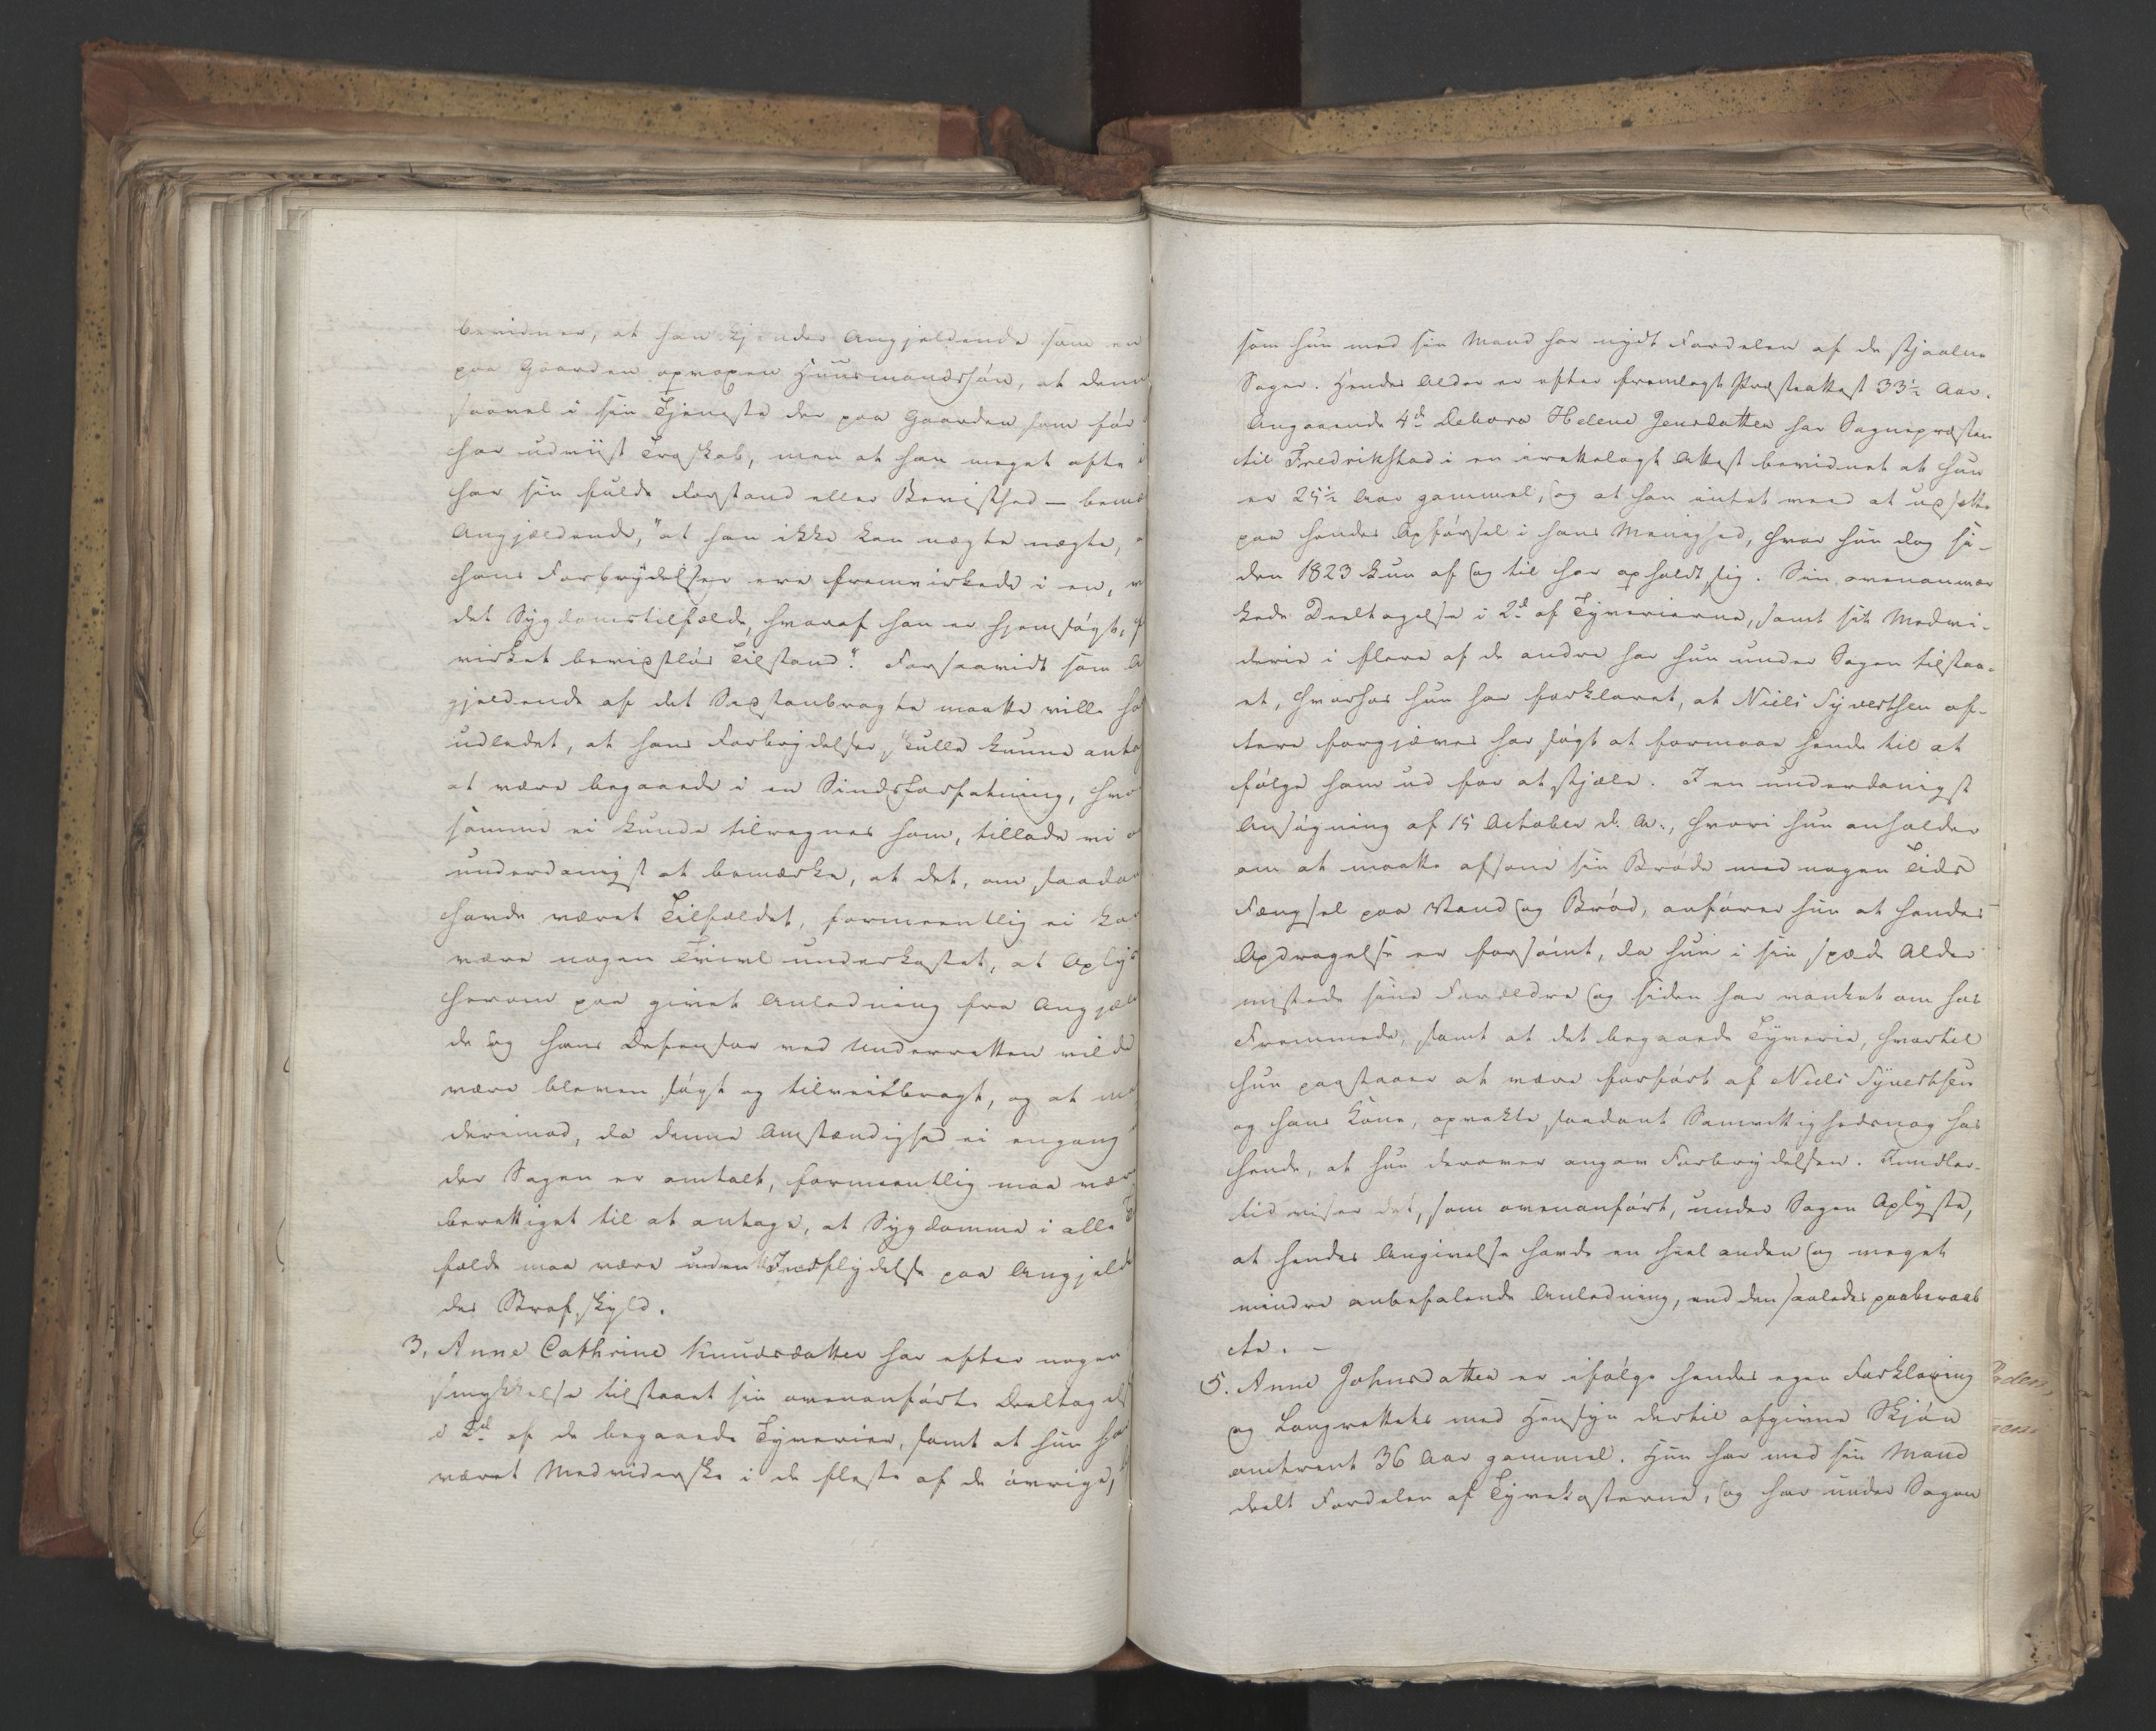 bevidner, at han kjender Angjeldende som en
paa Gaarden opvoxen Huusmandssøn, at denne
saavel i sin Tjeneste der paa Gaarden som før
har udviist Troskab, men at han meget ofte i
har sin fulde Forstand eller Bevisthed — bemæ
Angjældende, "at han ikke kan nægte nægte,
hans Forbrydelser ere fremvirkede i en, v
det Sygdomstilfælde, hvoraf han er hjemsøgt,
virket bevistløs Tilstand." Forsaavidt som A
gjeldende af det Sidstanbragte maatte ville ha
udledet, at hans Forbrydelser skulle kunne anta
at være begaaede i en Sindsforfatning, hvo
samme ei kunde tilregnes ham, tillade vi o
underdanigst at bemærke, at det, om saadan
havde været Tilfældet, formeentlig ei ka
være nogen Tvivl underkastet, at Oplys
herom paa givet Anledning fra Angjæl
de og hans Defensor ved Underretten vilde
være bleven søgt og tilveiebragt, og at m
derimod, da denne Omstændighed ei engang
der Sagen er omtalt, formeentlig maa vær
berettiget til at antage, at Sygdomme i alle T
fælde maa være uden Indflydelse paa Angjeld
des Strafskyld.
3, Anne Cathrine Knudsdatter har efter nogen
smykkelse tilstaaet sin ovenanførte Deeltagels
i 2de af de begaaede Tyverier, samt at hun ha
været Medviderske i de fleste af de øvrige,
som hun med sin Mand har nydt Fordelen af de stjaalne
Sager. Hendes Alder er efter fremlagt Præsteattest 33½ Aar.
Angaaende 4de Debora Helene Jensdatter har Sognepræsten
til Fredrikstad i en irettelagt Attest bevidnet at hun
er 25½ Aar gammel, og at han intet veed at udsætte
paa hendes Opførsel i hans Menighed, hvor hun dog si-
den 1823 kun af og til har opholdt sig. Sin ovenanmær
kede Deeltagelse i 2de af Tyverierne, samt sit Medvi-
derie i flere af de andre har hun under Sagen tilstaa-
et, hvorhos hun har forklaret, at Niels Syvertsen of-
tere forgjæves har søgt at formaae hende til at
følge ham ud for at stjæle. I en underdanigst
Ansøgning af 15 October d. A., hvori hun anholder
om at maatte afsone sin Brøde med nogen Tids
Fængsel paa Vand og Brød, anfører hun at hendes
Opdragelse er forsømt, da hun i sin spæde Alder
mistede sine Forældre og siden har vanket om hos
Fremmede, samt at det begaaede Tyverie, hvortil
hun paastaaer at være forført af Niels Syvertsen
og hans Kone, opvakte saadant Samvittighedsnag hos
hende, at hun derover angav Forbrydelsen. Imidler-
tid viser det, som ovenanført, under Sagen Oplyste,
at hendes Angivelse havde en heel anden og meget
mindre anbefalende Anledning, end den saaledes paaberaab
te. -
5. Anne Johnsdatter er ifølge hendes egen Forklaring
og Laugrettets med Hensyn dertil afgivne Skjøn
omtrent 36 Aar gammel. Hun har med sin Mand
deelt Fordelen af Tyvekosterne, og har under Sagen